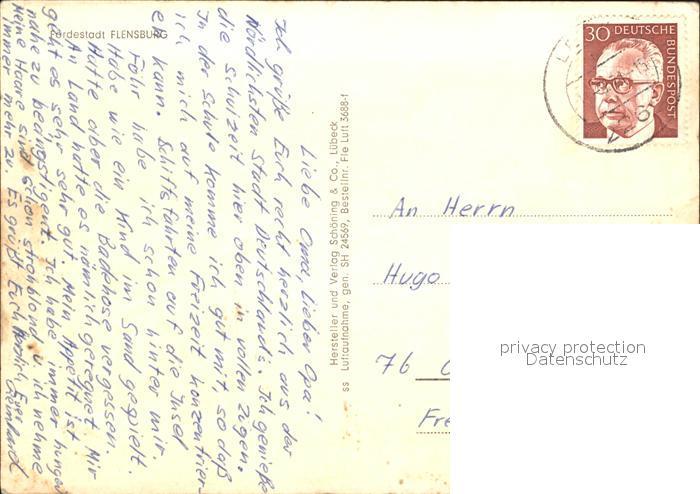 Fördestadt FLENSBURG
Liebe Oma, lieber Opa!
Ich grüße Euch recht herzlich aus der
Nördlichsten Stadt Deutschlands. Ich genieße
die Schulzeit hier oben in vollen Zügen.
In der Schule komme ich gut mit, so daß
ich mich auf meine Freizeit konzentrier-
en kann. Schiffsfahrten auf die Insel
Föhr habe ich schon hinter mir.
Habe wie ein Kind im Sand gespielt.
Hatte aber die Badehose vergessen.
An Land hatte es nämlich geregnet. Mir
geht es sehr, sehr gut. Mein Appetit ist
nahe zu beängstigent. Ich habe immer hunger
Meine Haare sind schon strohblond u. ich nehme
immer mehr zu. Es grüßt Euch herzlich Euer
Hersteller und Verlag Schöning & Co., Lübeck
ss Luftaufnahme, gen. SH 24569, Bestellnr. Fle Luft 3688-f
30 DEUTSCHE
BUNDESPOST
An Herrn
Hugo
76
Fre
privacy protection
Datenschutz